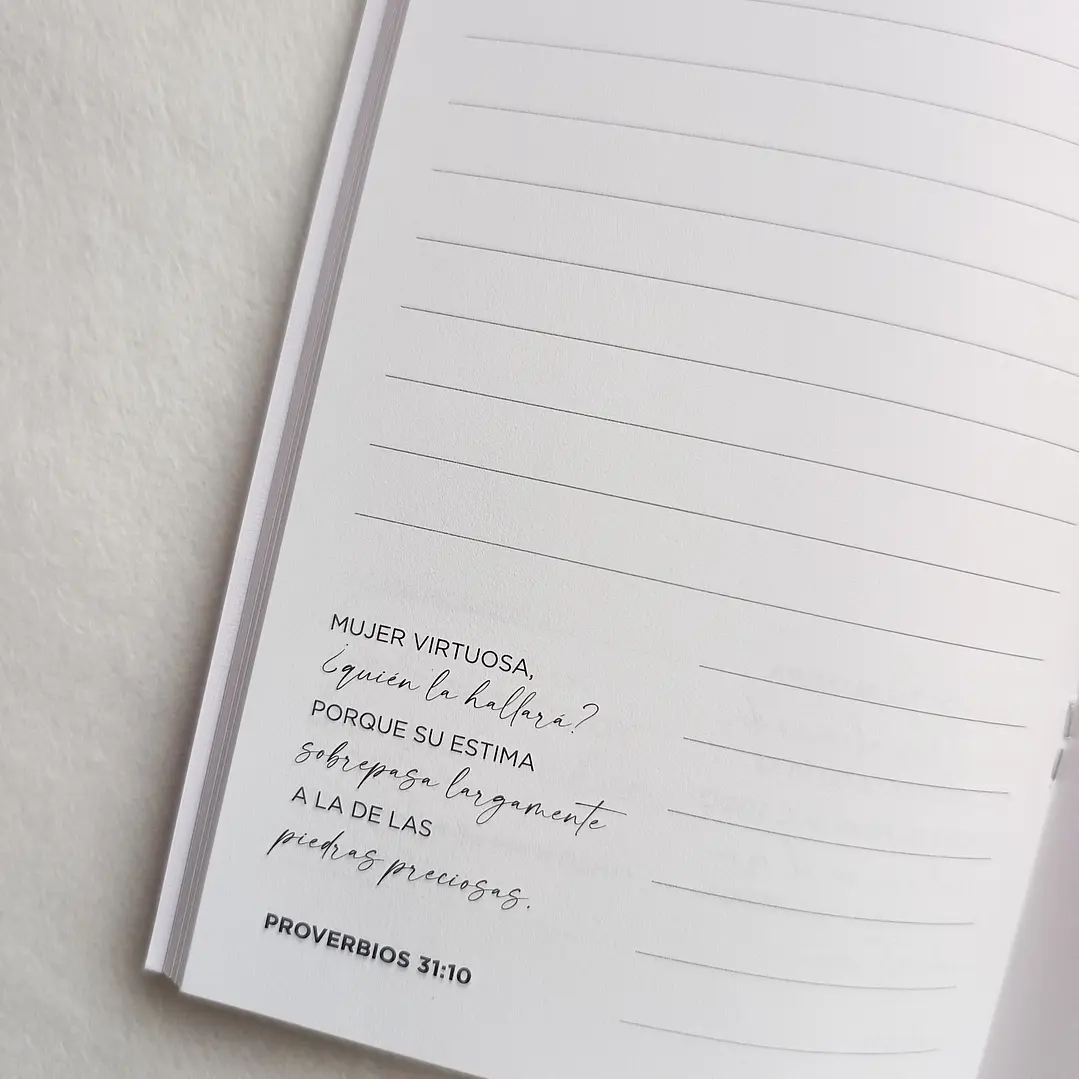 MUJER VIRTUOSA,
¿quién la hallará?
PORQUE SU ESTIMA
sobrepasa largamente
A LA DE LAS
piedras preciosas.
PROVERBIOS 31:10